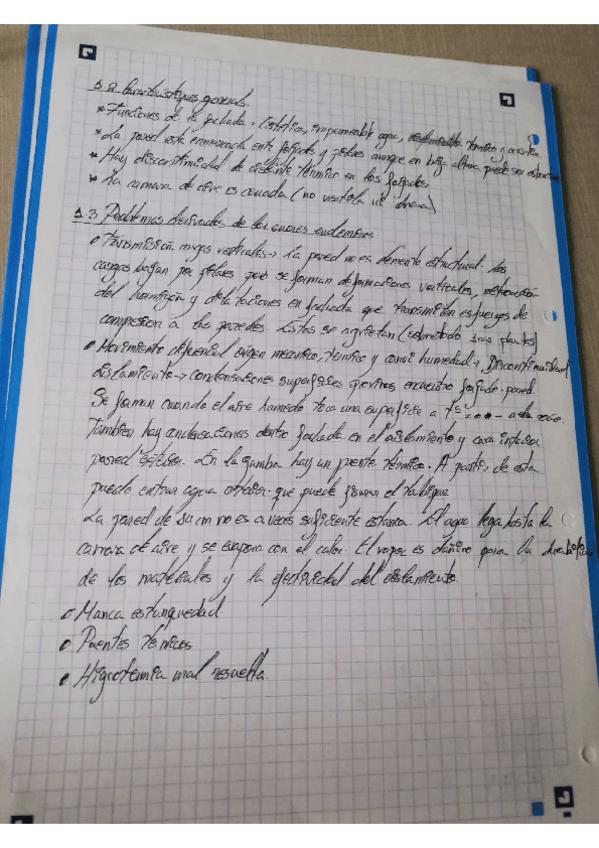 1.2 Caracteristiques generals.
* Funciones de la fachada, (estética, impermeable agua, termico y
* La pared está entre forjados y pilares aunque en baja altura puede ser
* Hay discontinuidad de aislante térmico en los forjados
* La camara de aire es cerrada (no ventila ni drena)
1.3 Problemas derivados de los
• Transmision vertical → La pared no es elemento estructural. Las
cargas bajan por pilares pero se forman deformaciones verticales, retracción
del hormigón y dilataciones en fachada que transmiten esfuerzos de
compresion a las paredes. Estas se agrietan (sobretodo plantas)
• Movimiento diferencial origen mecanico, termico y humedad → Discontinuidad
aislamiento → condensaciones superficiales encuentro forjado-pared.
Se forman cuando el aire humedo toca una superficie a
Tambien hay condensaciones dentro fachada en el aislamiento y cara interior
pared exterior. En la gamba hay un puente térmico. A partir de esta
puede entrar agua que puede el tabique
La pared de cm no es a veces suficiente estanca. El agua llega hasta la
camara de aire y se evapora con el calor. El vapor es dañino para la
de los materiales y la efectividad del aislamiento.
• Manca estanquedad
• Puentes térmicos
• Higrotermia mal resuelta.